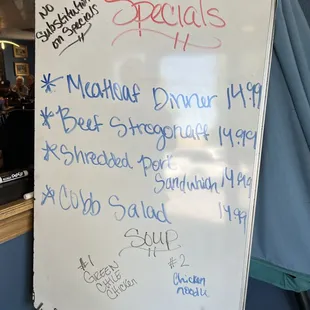 No
Substitutions
on Specials
Specials
* Meatloaf Dinner 14.99
* Beef Strogonaff 14.99
* Shredded Pork
Sandwhich 14.99
* Cobb Salad 14.99
Soup
#1
GREEN
CHILE
Chicken
#2
Chicken
noodle